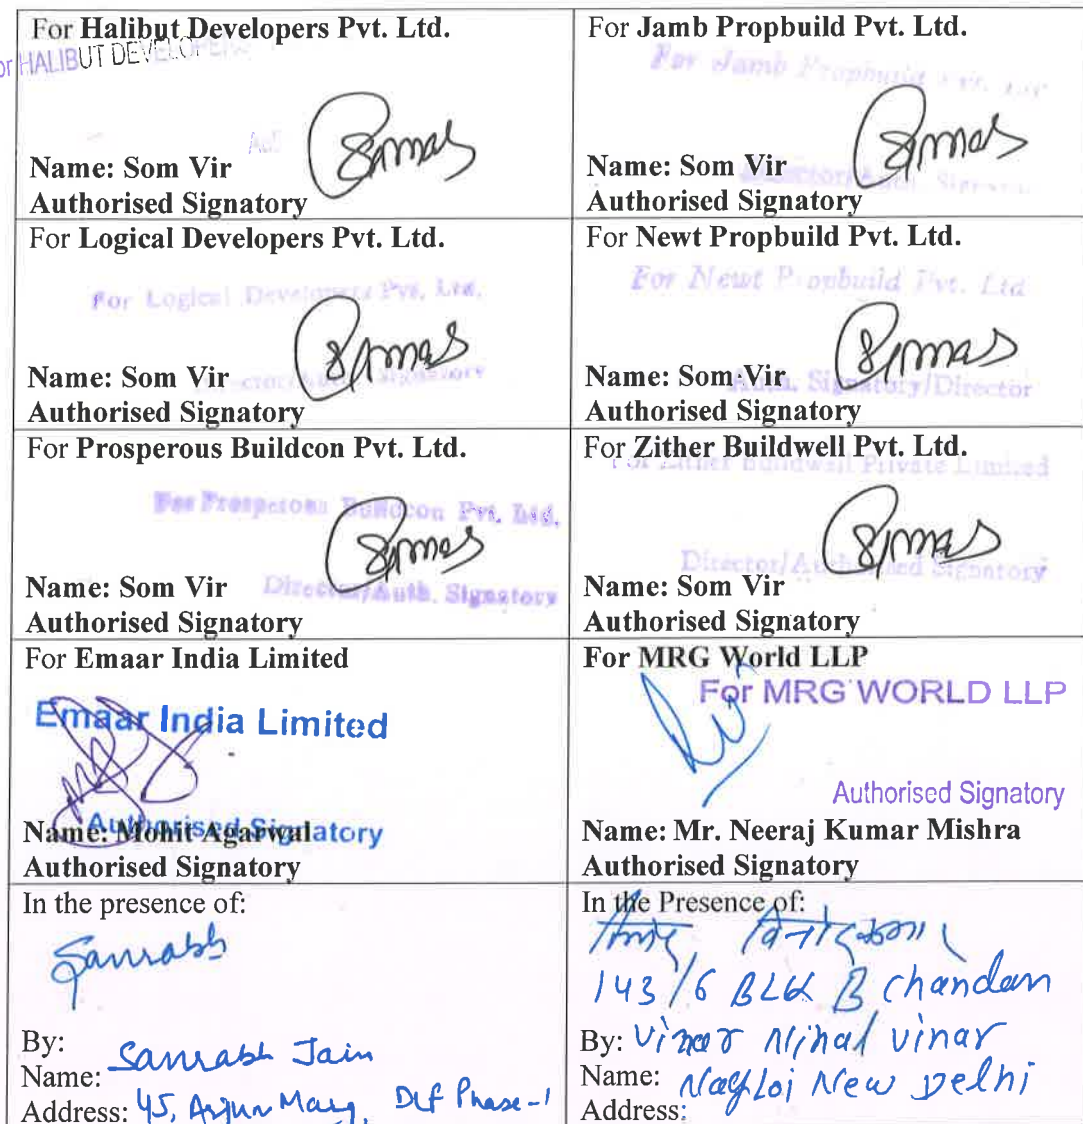 For Halibut Developers Pvt. Ltd.
HALIBUT DEVELOPERS
Name: Som Vir
Authorised Signatory
For Jamb Propbuild Pvt. Ltd.
For Jamb Propbuild Pvt. Ltd
Name: Som Vir
Authorised Signatory
For Logical Developers Pvt. Ltd.
For Logical Developers Pvt. Ltd.
Director/Auth. Signatory
Name: Som Vir
Authorised Signatory
For Newt Propbuild Pvt. Ltd.
For Newt Propbuild Pvt. Ltd
Auth. Signatory/Director
Name: Som Vir
Authorised Signatory
For Prosperous Buildcon Pvt. Ltd.
For Prosperous Buildcon Pvt. Ltd.
Director/Auth. Signatory
Name: Som Vir
Authorised Signatory
For Zither Buildwell Pvt. Ltd.
For Zither Buildwell Private Limited
Director/Authorised Signatory
Name: Som Vir
Authorised Signatory
For Emaar India Limited
Emaar India Limited
Authorised Signatory
Name: Mohit Agarwal
Authorised Signatory
For MRG World LLP
For MRG WORLD LLP
Authorised Signatory
Name: Mr. Neeraj Kumar Mishra
Authorised Signatory
In the presence of:
Saurabh
By:
Name: Saurabh Jain
Address: 45, Arjun Marg, DLF Phase-1
In the Presence of:
143/6 BLK B Chandan
By: Nihal vihar
Name: Nagloi New Delhi
Address: